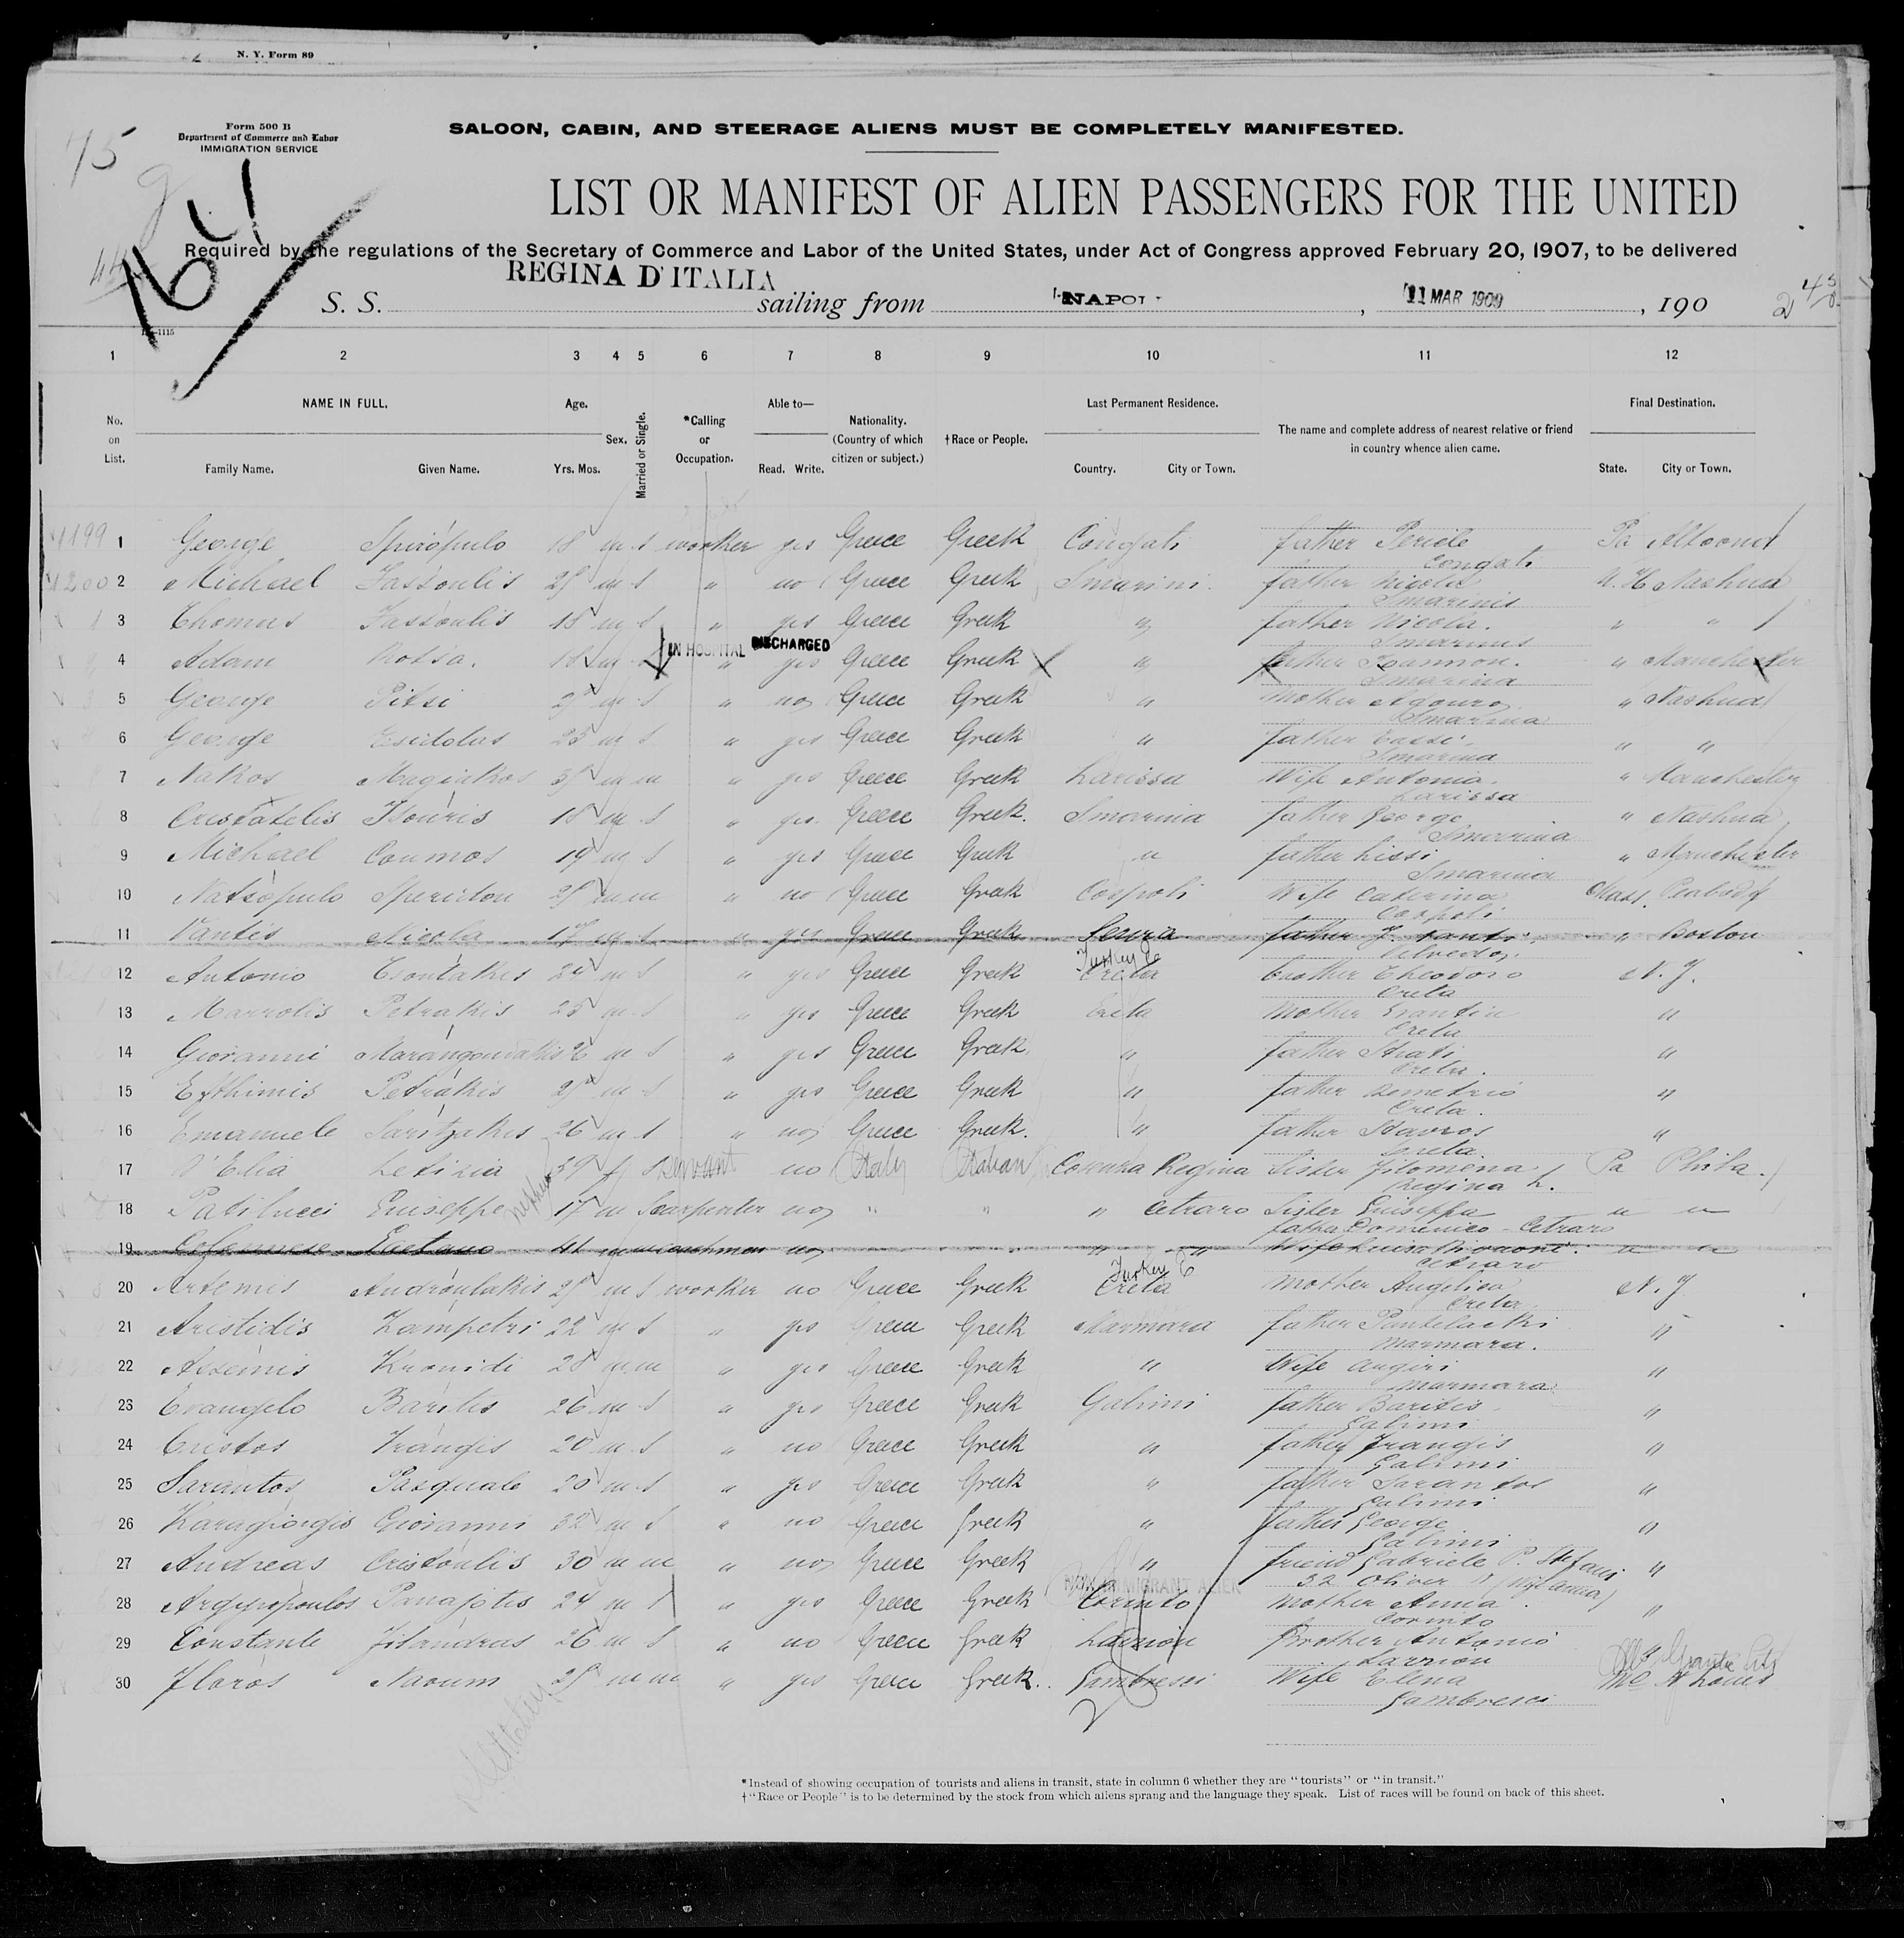 N. Y. Form 89
Form 500 B
Department of Commerce and Labor
IMMIGRATION SERVICE
75
SALOON, CABIN, AND STEERAGE ALIENS MUST BE COMPLETELY MANIFESTED.
LIST OR MANIFEST OF ALIEN PASSENGERS FOR THE UNITED
Required by the regulations of the Secretary of Commerce and Labor of the United States, under Act of Congress approved February 20, 1907, to be delivered
S. S. REGINA D'ITALIA sailing from NAPOLI, 11 MAR 1909, 190
1 2 3 4 5 6 7 8 9 10 11 12
No. on List.
NAME IN FULL.
Family Name. Given Name.
Age.
Yrs. Mos.
Sex.
Married or Single.
*Calling or Occupation.
Able to—
Read. Write.
Nationality. (Country of which citizen or subject.)
†Race or People.
Last Permanent Residence.
Country. City or Town.
The name and complete address of nearest relative or friend in country whence alien came.
Final Destination.
State. City or Town.
1 George Spirópulo 18 m s worker yes Greece Greek Congati father Pericle Pa Altoona
Congati
2 Michael 25 m s " no Greece Greek Smarini father Nicola N. H. Nashua
Smarinis
3 Thomas 18 m s " yes Greece Greek " father Nicola. " "
4 Adam 18 m s IN HOSPITAL DISCHARGED " yes Greece Greek " father Joannon. " Manchester
Smarina
5 George Pitsi m s " no Greece Greek " mother " Nashua
Smarina
6 George m s " yes Greece Greek " father " "
Smarina
7 Nakos m m " yes Greece Greek Larissa Wife Antonia. " Manchester
Larissa
8 Isouris 18 m s " yes Greece Greek. Smarina father George " Nashua
Smarina
9 Michael Coumos 19 m s " yes Greece Greek " father Lissi " Manchester
Smarina
10 Natsópulo Speridon m m " no Greece Greek Cospoli Wife Caterina Mass. Peabody
Cospoli
11 Vantes Nicola 17 m s " yes Greece Greek father " Boston
12 Antonio 24 m s " yes Greece Greek Turkey Creta brother Theodoro N. Y.
Creta
13 Petrakis 25 m s " yes Greece Greek Creta mother "
Creta
14 Giovanni 26 m s " yes Greece Greek " father Strati "
Creta.
15 Efthimis Petrakis m s " yes Greece Greek " father Demetrio "
Creta.
16 Emanuele 26 m s " no Greece Greek. " father Stavros "
Creta.
17 D'Elia Letizia 39 f s servant no Italy Italian Cosenza Regina Sister Filomena Pa Phila.
Regina
18 Patilucci Giuseppe nephew 17 m s carpenter no " " " Cetraro Sister Giuseppa " "
father Domenico - Cetraro
19 Gaetano 41 m m coachman no " " Wife Luisa " "
Cetraro
20 Artemis Andróulakis m s worker no Greece Greek Turkey Creta mother Angelica N. Y.
Creta
21 Aristidis Zampetri 22 m s " yes Greece Greek Marmara father "
Marmara.
22 28 m m " yes Greece Greek " Wife "
Marmara
23 Evangelo Baritis 26 m s " yes Greece Greek Galimi father Baritis "
Galimi
24 Cristos Frangis 20 m s " no Greece Greek " father Frangis "
Galimi
25 Sarantos Pasquale 20 m s " yes Greece Greek " father Sarantos "
Galimi
26 Karagiorgis Giovanni 32 m s " no Greece Greek " father George "
Galimi
27 Andreas Cristoulis 30 m m " no Greece Greek " friend Gabriele P. Stefani "
32 Oliver St
NON IMMIGRANT ALIEN
28 Argyropoulos Panajotis 24 m s " yes Greece Greek Corinto mother Anna "
Corinto
29 Constante Filandras 26 m s " no Greece Greek Larrion Brother Antonio
Larrion
30 Floros Naoum m m " yes Greece Greek. Gambresci Wife Elena St Louis
Gambresci
*Instead of showing occupation of tourists and aliens in transit, state in column 6 whether they are "tourists" or "in transit."
†"Race or People" is to be determined by the stock from which aliens sprang and the language they speak. List of races will be found on back of this sheet.